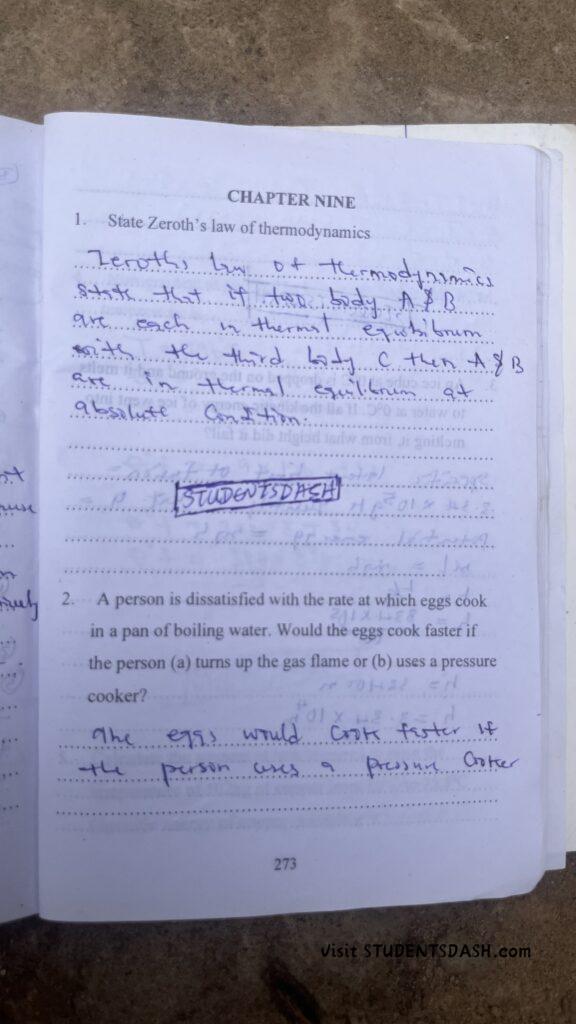 CHAPTER NINE
1. State Zeroth's law of thermodynamics
Zeroths law of thermodynamics
state that if two body A & B
are each in thermal equilibrum
with the third body C then A & B
are in thermal equilibrum at
absolute Condition.
STUDENTSDASH
2. A person is dissatisfied with the rate at which eggs cook
in a pan of boiling water. Would the eggs cook faster if
the person (a) turns up the gas flame or (b) uses a pressure
cooker?
The eggs would Cook faster if
the person uses a pressure Cooker
273
Visit STUDENTSDASH.com